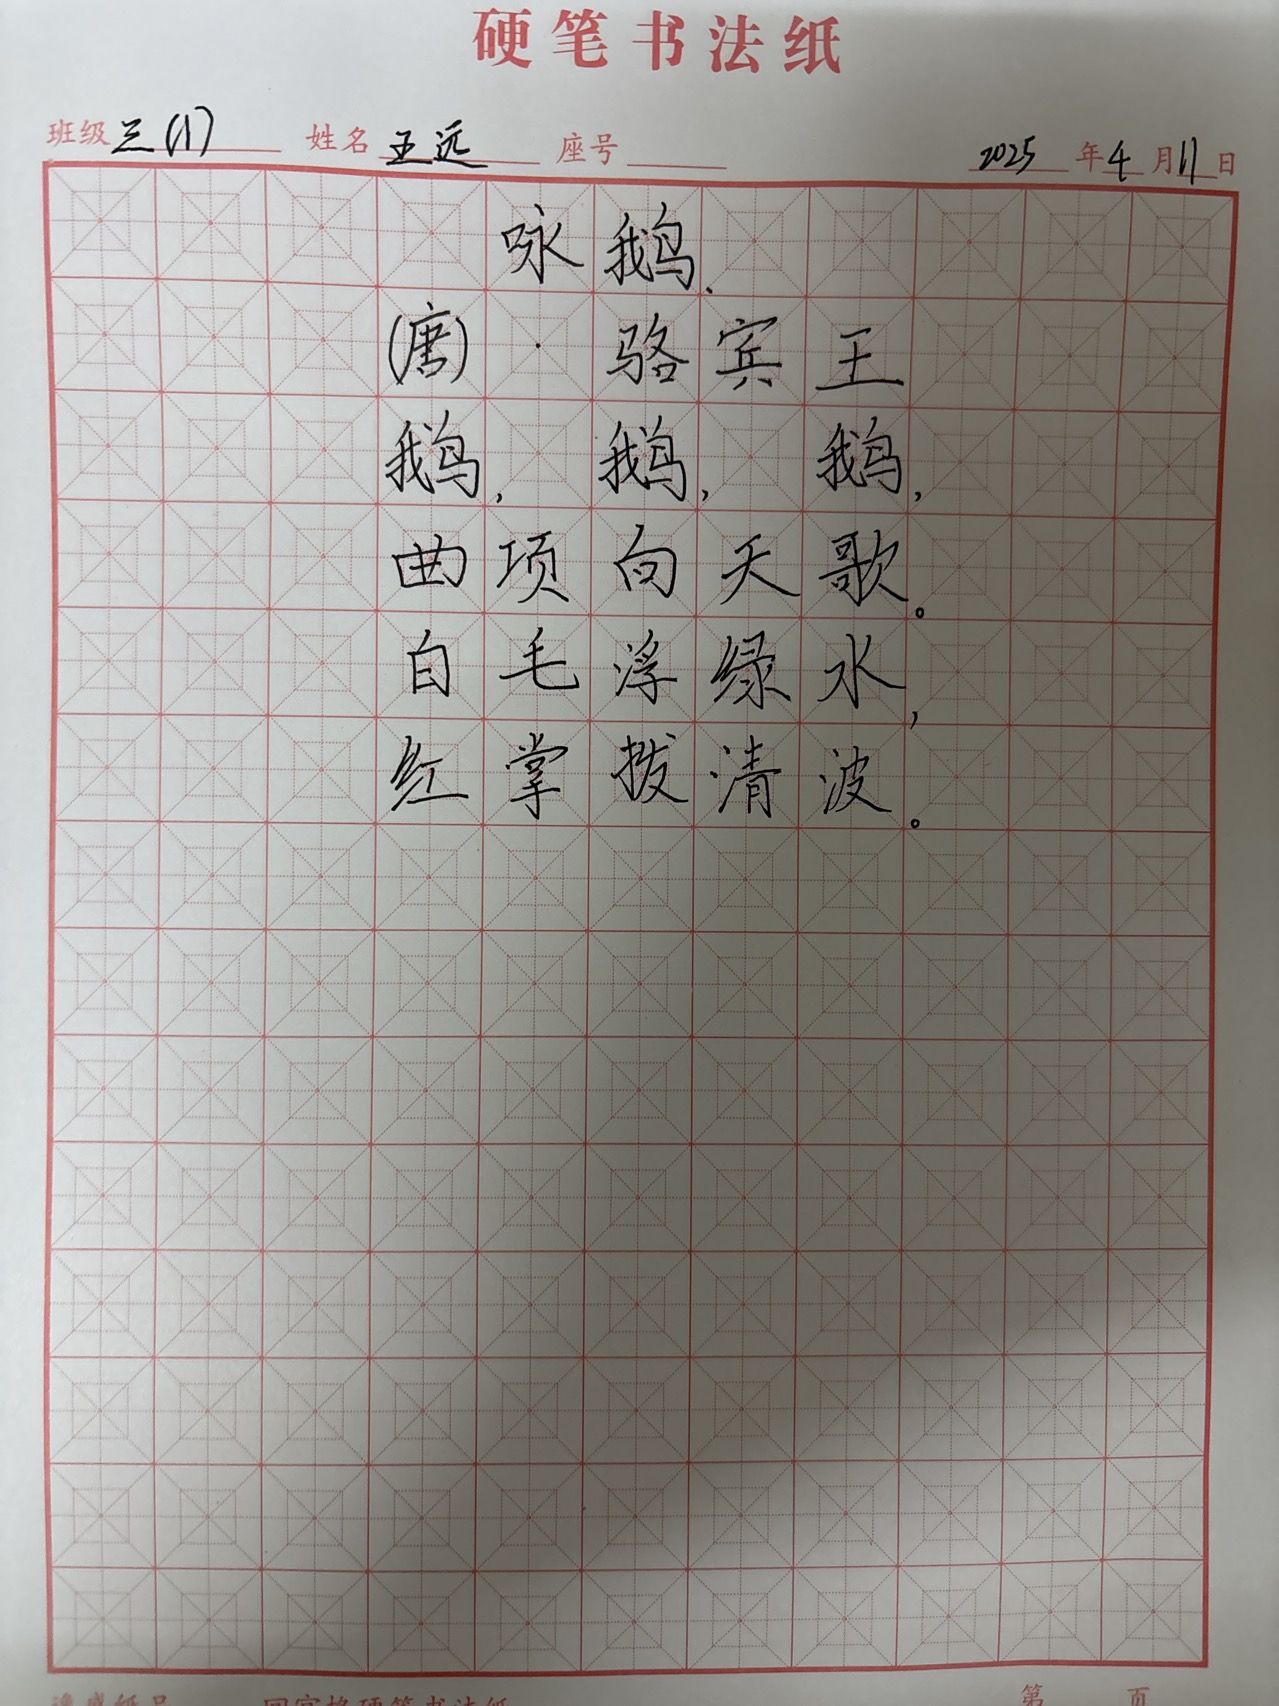 硬笔书法纸
班级 三(1) 姓名 王远 座号 2025年4月11日
咏鹅.
(唐)·骆宾王
鹅,鹅,鹅,
曲项向天歌。
白毛浮绿水,
红掌拨清波。
第 页